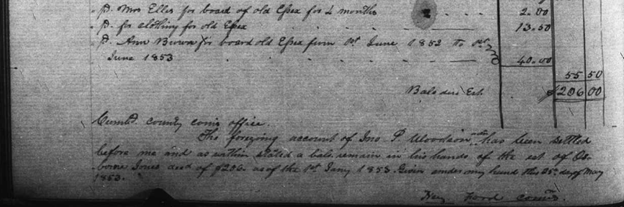 " P. Mrs Eller for board of old Essex for 2 months 2.00
" P. for clothing for old Essex 13.50
" P. Ann Brown for board old Essex from 1st June 1852 to 1st
June 1853 40.00
55 50
Bals due Est. $206 00
Cumbd. county coms office.
The foregoing account of Jno P. Woodson has been settled
before me and as within stated a bals. remain in his hands of the est of Os-
borne Jones decd of $206. as of the 1st Jany 1853 Given under my hand this 28th day of May
1853.
Hen Ford comr.